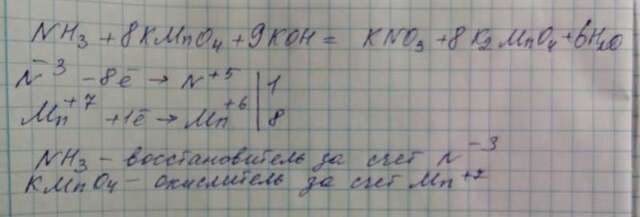 NH3 + 8KMnO4 + 9KOH = KNO3 + 8K2MnO4 + 6H2O
N-3 -8ē → N+5 | 1
Mn+7 +1ē → Mn+6 | 8
NH3 - восстановитель за счет N-3
KMnO4 - окислитель за счет Mn+7